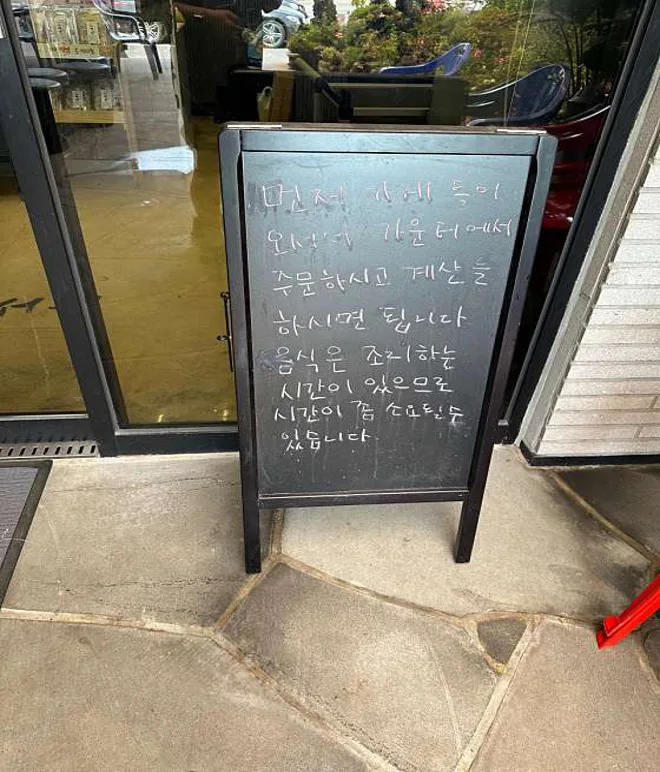 먼저 가게 들어
오셔서 카운터에서
주문하시고 계산을
하시면 됩니다
음식은 조리하는
시간이 있으므로
시간이 좀 소요될수
있습니다